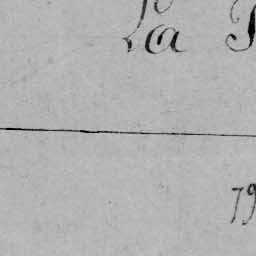 La
79